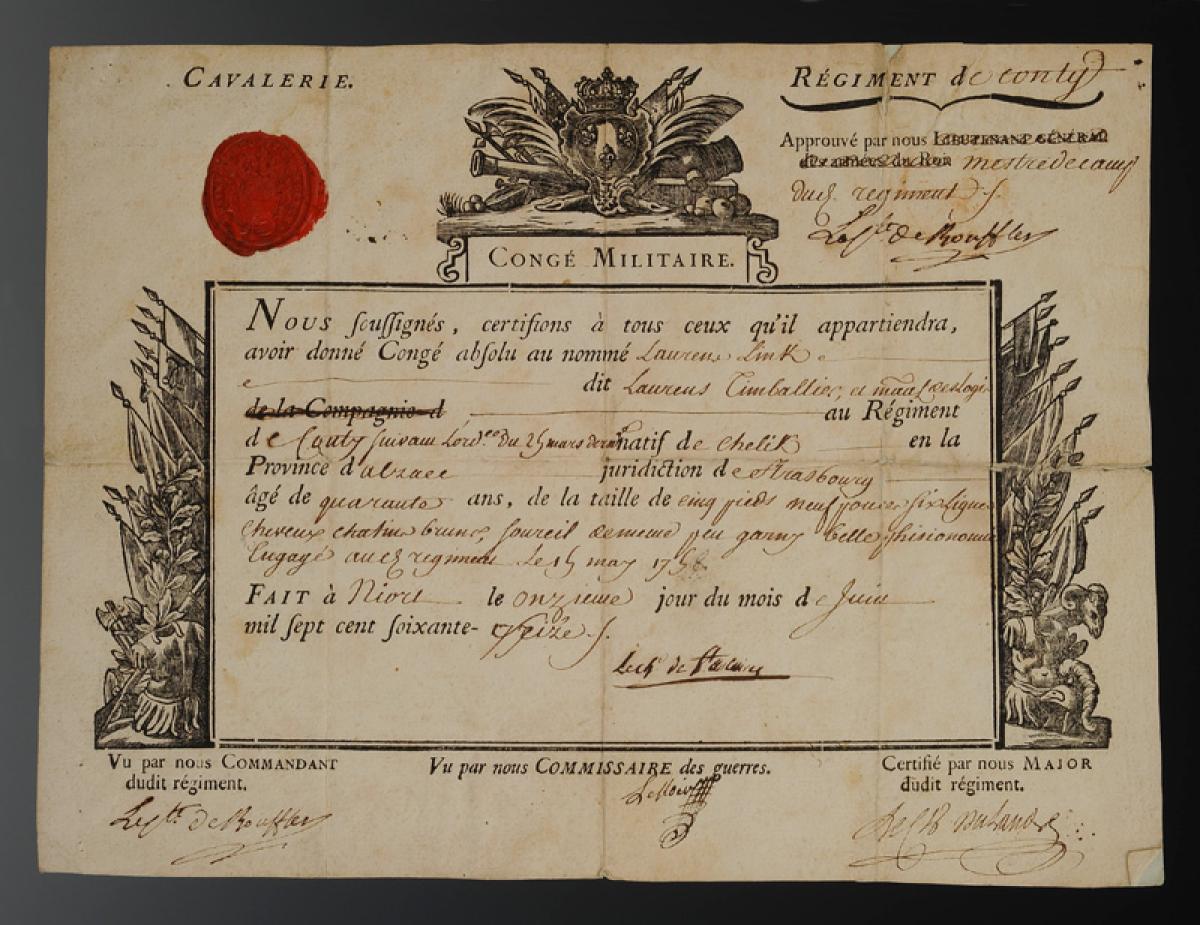 CAVALERIE.
RÉGIMENT de conty
Approuvé par nous LIEUTENANT GÉNÉRAL
des armées du Roi mestre de camp
dud. regiment
Le Cte de Boufflers
CONGÉ MILITAIRE.
NOUS soussignés, certifions à tous ceux qu'il appartiendra,
avoir donné Congé absolu au nommé Laurens Link
dit Laurens Timballier, et
de la Compagnie d au Régiment
de Conty suivant du 25 mars natif de chelik en la
Province d'alzace juridiction de Strasbourg
âgé de quarante ans, de la taille de cinq pieds neuf pouces six lignes
cheveux chatins bruns, sourcil de meme peu garny belle phisionomie
Engagé aud. regiment Le 15 may 175
FAIT à Niort le onzieme jour du mois de Juin
mil sept cent soixante-treize
Le ch. de
Vu par nous COMMANDANT
dudit régiment.
Le Cte de Boufflers
Vu par nous COMMISSAIRE des guerres.
Certifié par nous MAJOR
dudit régiment.